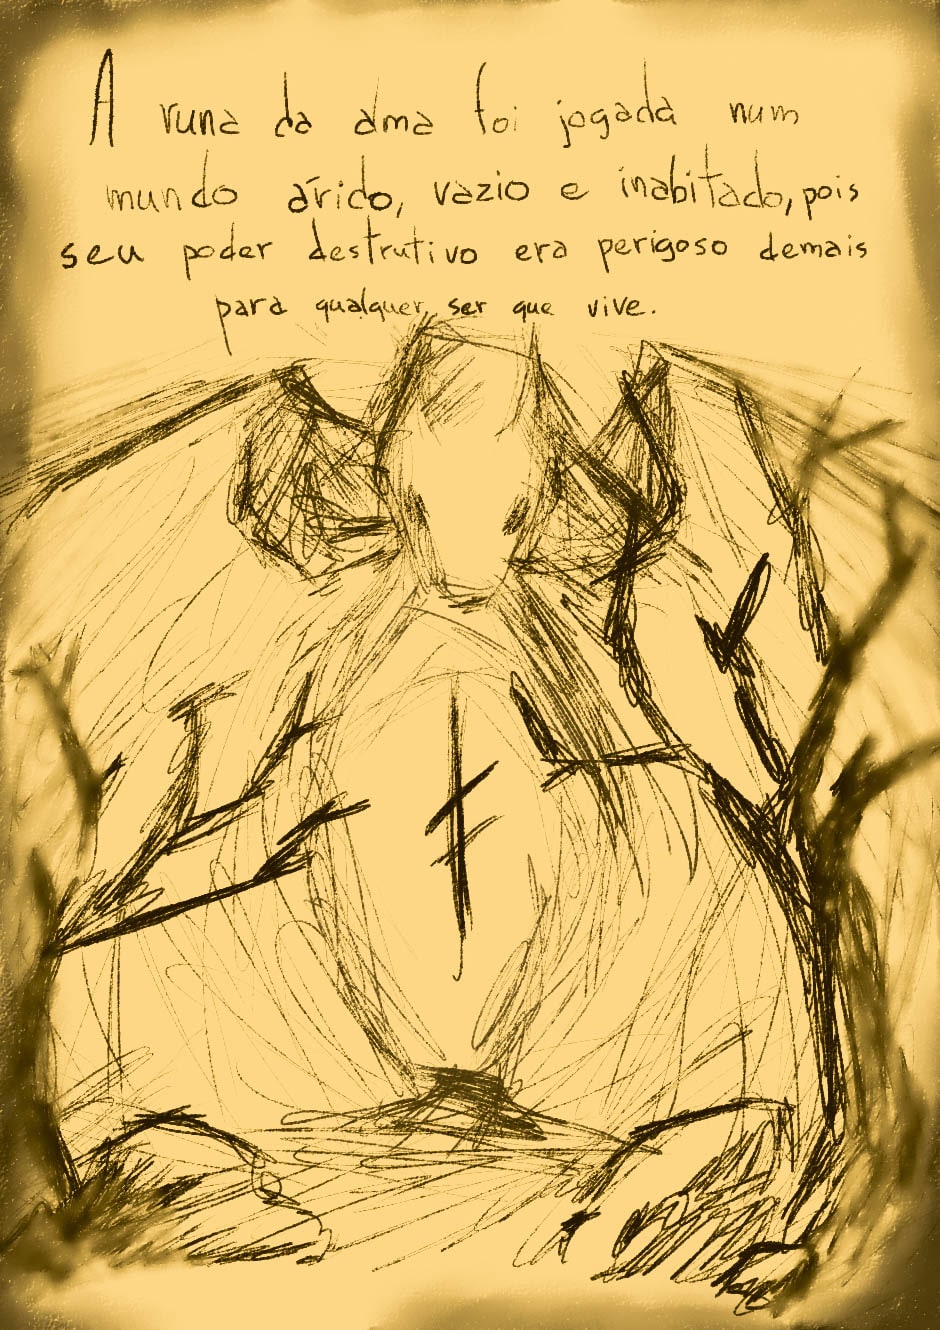 A runa da alma foi jogada num
mundo árido, vazio e inabitado, pois
seu poder destrutivo era perigoso demais
para qualquer ser que vive.